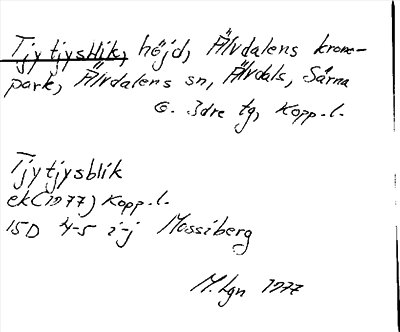 Tjytjysblik, höjd, Älvdalens krono-
park, Älvdalens sn, Älvdals, Särna
o. Idre tg, Kopp. l.
Tjytjysblik
ek (1977) Kopp. l.
15D 4-5 i-j Mossiberg
M. Lgn 1977